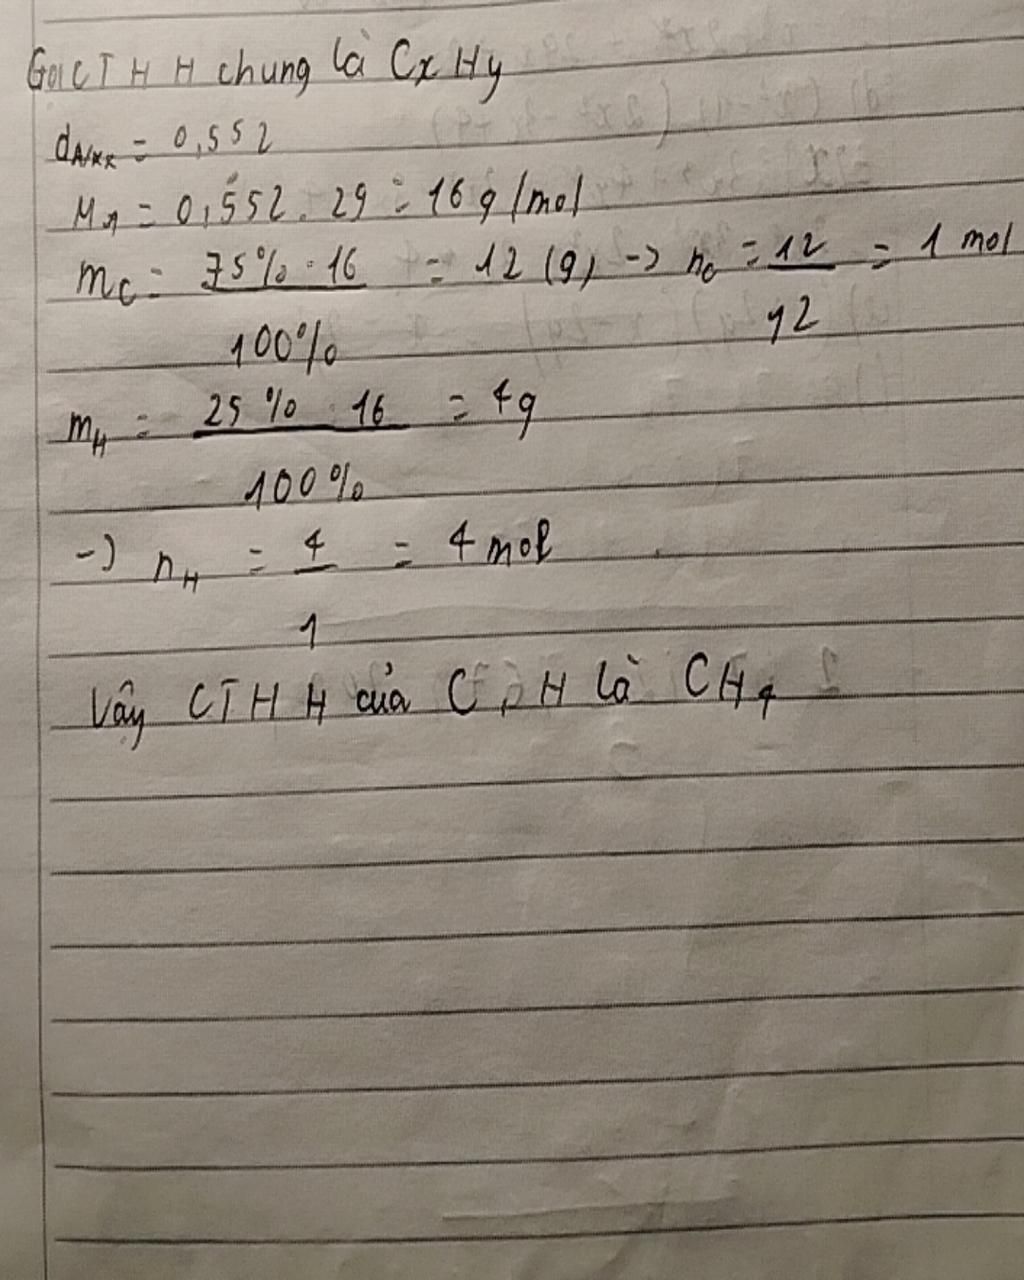 Gọi CTHH chung là CxHy
dA/KK = 0,552
MA = 0,552 . 29 = 16 g/mol
mC = 75% . 16 / 100% = 12 (g) -> nC = 12 / 12 = 1 mol
mH = 25% . 16 / 100% = 4g
-> nH = 4 / 1 = 4 mol
Vậy CTHH của C, H là CH4